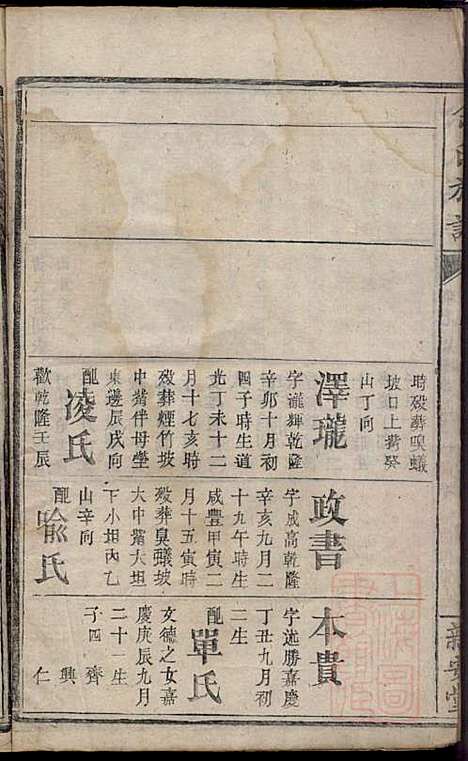 時殁葬臭蟻
坡口上嵜癸
山丁向
澤瓏
字瀧輝乾隆
辛卯十月初
四子時生道
光丁未十二
月十七亥時
殁葬煙竹坡
中嵜伴母塋
東邊辰戌向
配凌氏
歡乾隆壬辰
政書
字成高乾隆
辛亥九月二
十九午時生
咸豐甲寅二
月十五寅時
殁葬臭蟻坡
大中嵜大坦
下小坦內乙
山辛向
配喻氏
本貴
字述勝嘉慶
丁丑九月初
二生
配單氏
女德之女嘉
慶庚辰九月
二十一生
子四 齊
興
仁
新安堂